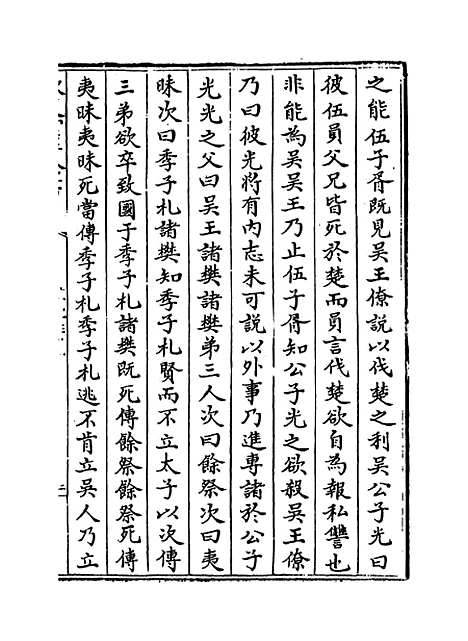 之能伍子胥既見吳王僚說以伐楚之利吳公子光曰
彼伍員父兄皆死於楚而員言伐楚欲自為報私讐也
非能為吳吳王乃止伍子胥知公子光之欲殺吳王僚
乃曰彼光將有內志未可說以外事乃進專諸於公子
光光之父曰吳王諸樊諸樊弟三人次曰餘祭次曰夷
昧次曰季子札諸樊知季子札賢而不立太子以次傳
三弟欲卒致國于季子札諸樊既死傳餘祭餘祭死傳
夷昧夷昧死當傳季子札季子札逃不肯立吳人乃立